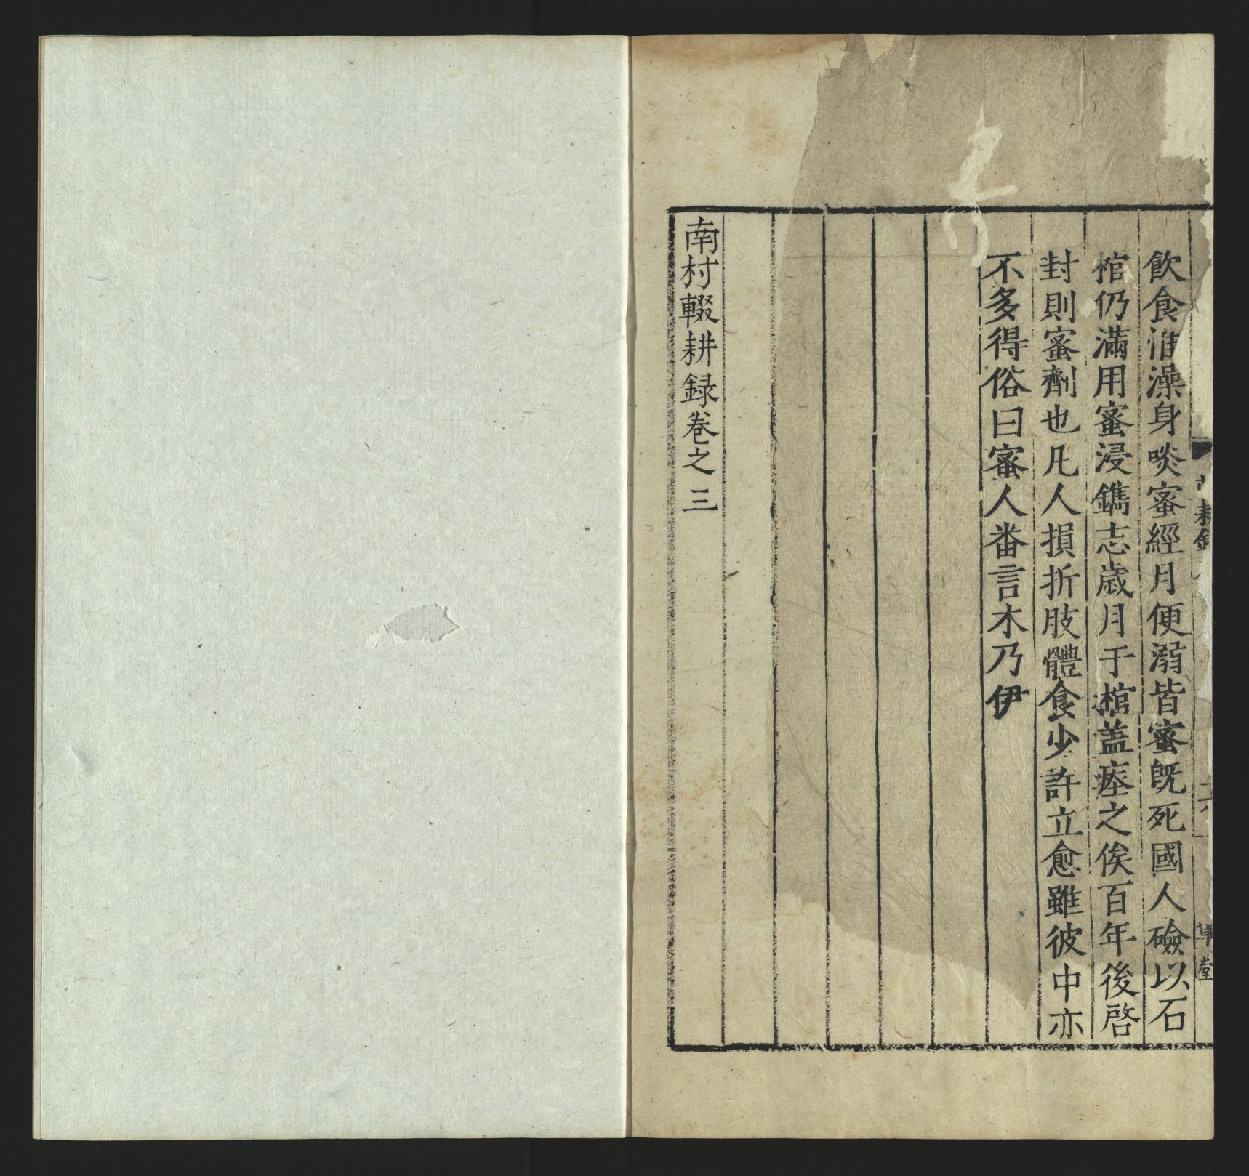 飲食惟澡身啖蜜經月便溺皆蜜旣死國人礆以石
棺仍滿用蜜浸鐫志歳月于棺蓋瘞之俟百年後啓
封則蜜劑也凡人損折肢體食少許立愈雖彼中亦
不多得俗曰蜜人番言木乃伊
南村輟耕録卷之三